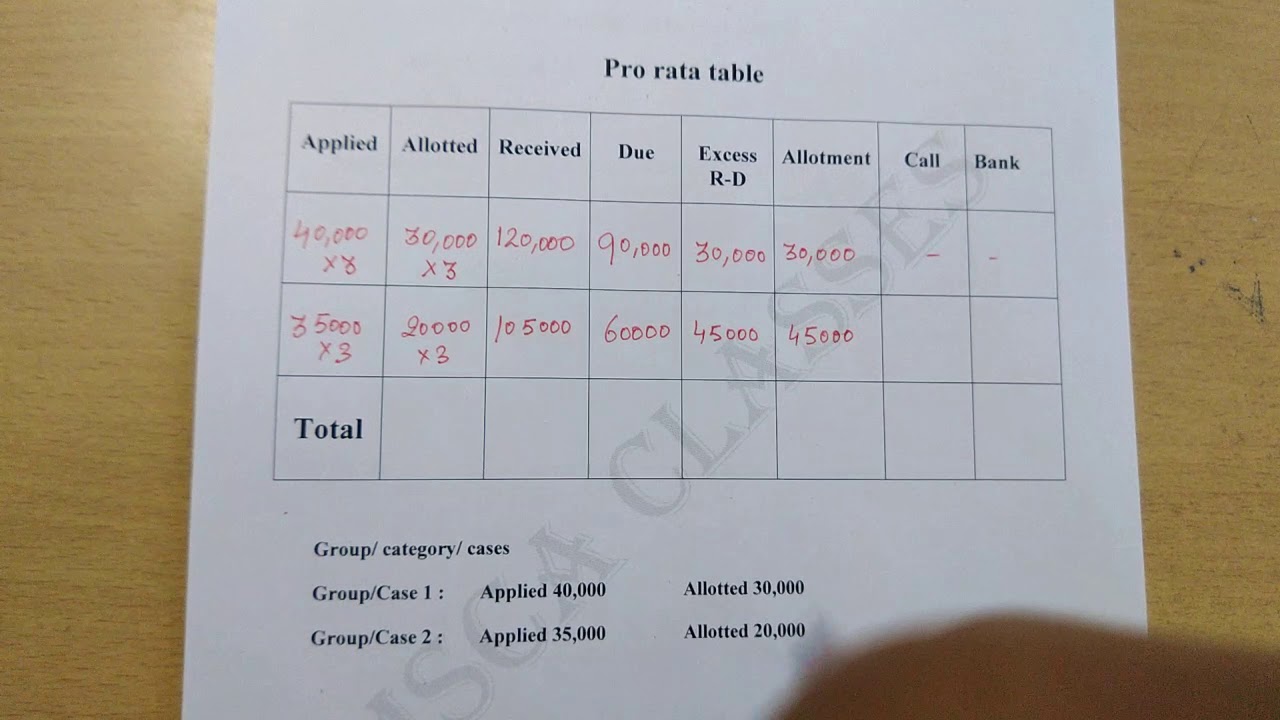 Pro rata table
Applied Allotted Received Due Excess R-D Allotment Call Bank
40,000 ×3 30,000 ×3 120,000 90,000 30,000 30,000 – -
35000 ×3 20000 ×3 105000 60000 45000 45000
Total
Group/ category/ cases
Group/Case 1 : Applied 40,000 Allotted 30,000
Group/Case 2 : Applied 35,000 Allotted 20,000
MSCA CLASSES